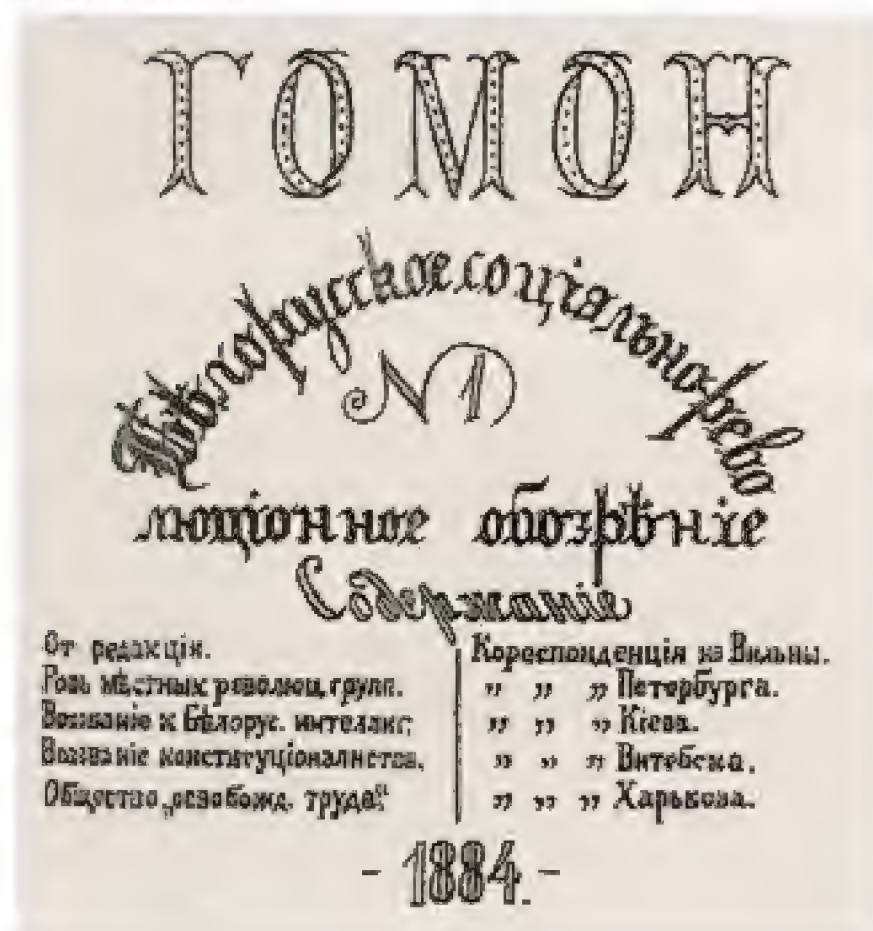 ГОМОН
Бѣлорусское соціяльно-рево
№ 1
люціонное обозрѣніе
Содержаніе
От редакціи.
Роль мѣстных революц. групп.
Воззваніе к Бѣлорус. интеллиг.
Воззваніе конституціоналистов.
Общество „освобожд. труда“
Кореспонденція из Вильны.
„ „ „ Петербурга.
„ „ „ Кіева.
„ „ „ Витебска.
„ „ „ Харькова.
- 1884. -